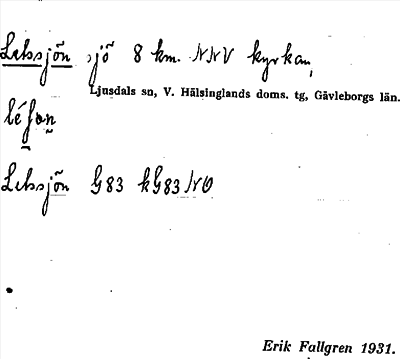 Leksjön sjö 8 km. NNV kyrkan,
Ljusdals sn, V. Hälsinglands doms. tg, Gävleborgs län.
Leksjön G83 kG83NO
Erik Fallgren 1931.